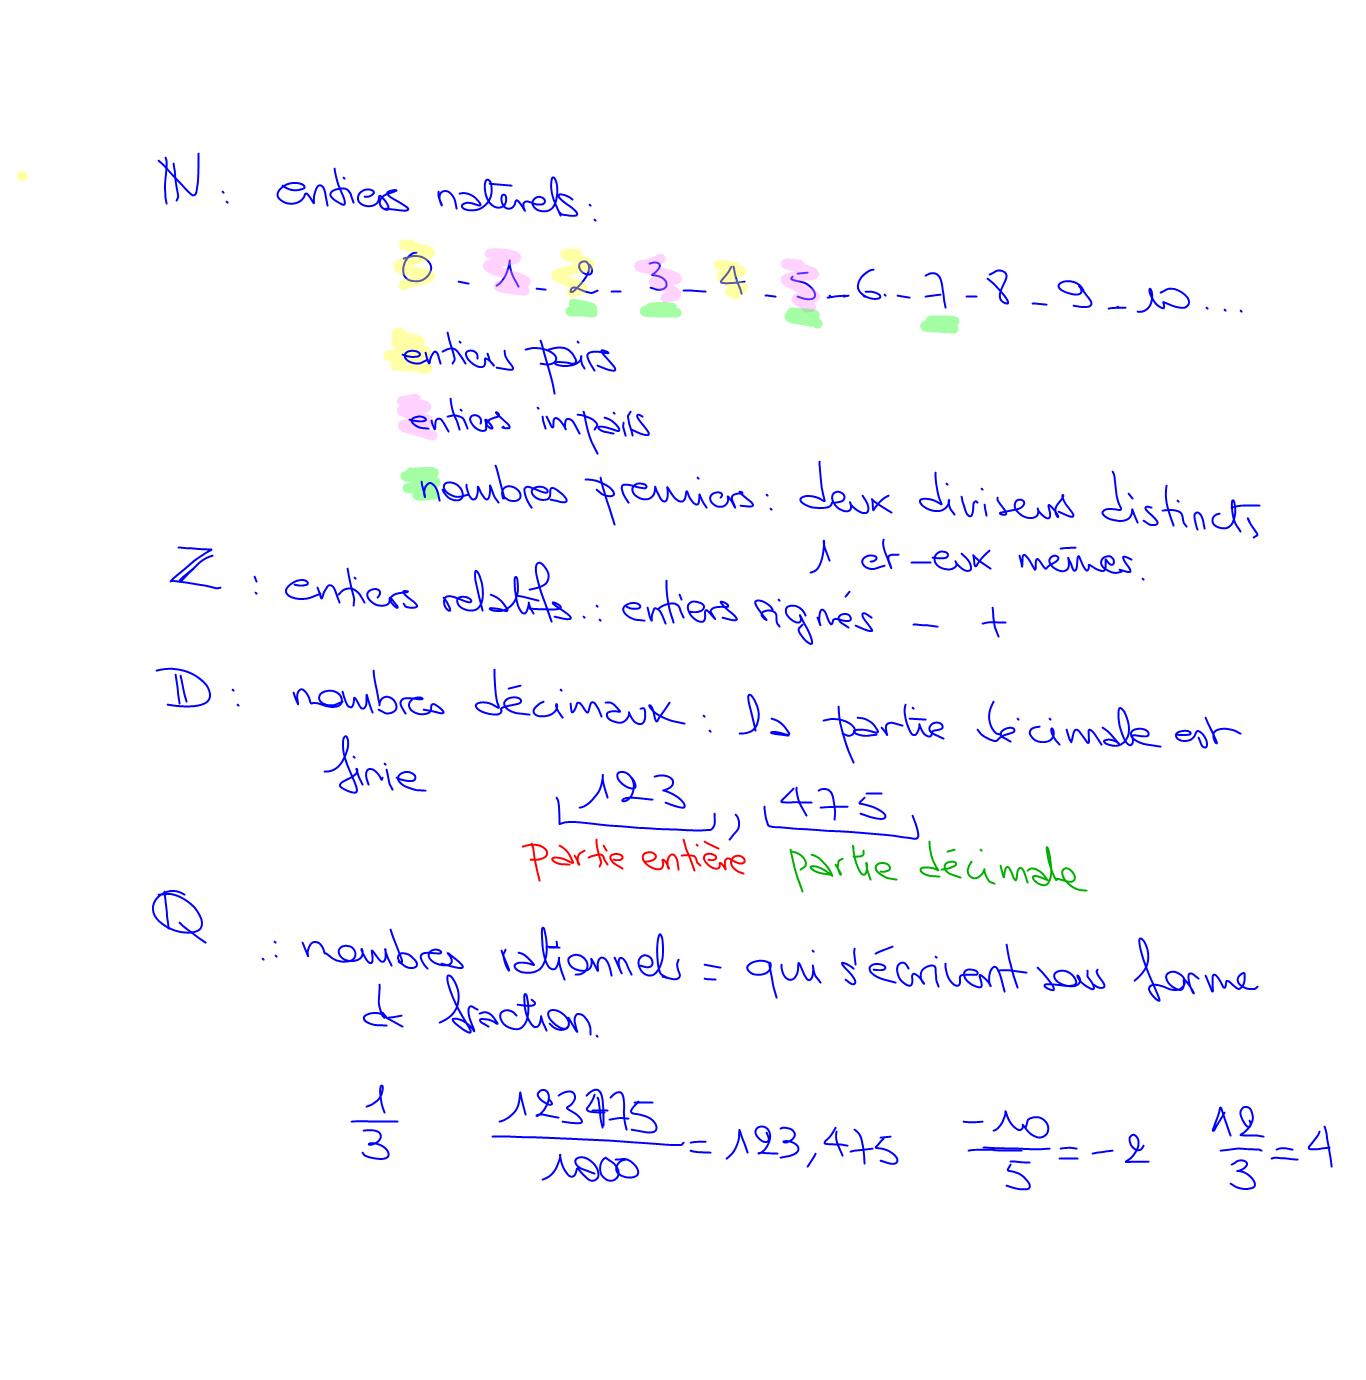 ℕ : entiers naturels :
0 - 1 - 2 - 3 - 4 - 5 - 6 - 7 - 8 - 9 - 10 ...
entiers pairs
entiers impairs
nombres premiers : deux diviseurs distincts
1 et - eux mêmes.
ℤ : entiers relatifs : entiers signés - +
𝔻 : nombres décimaux : la partie décimale est
finie
123 , 475
partie entière partie décimale
ℚ : nombres rationnels = qui s'écrivent sous forme
de fraction.
1/3 123475/1000 = 123,475 -10/5 = -2 12/3 = 4